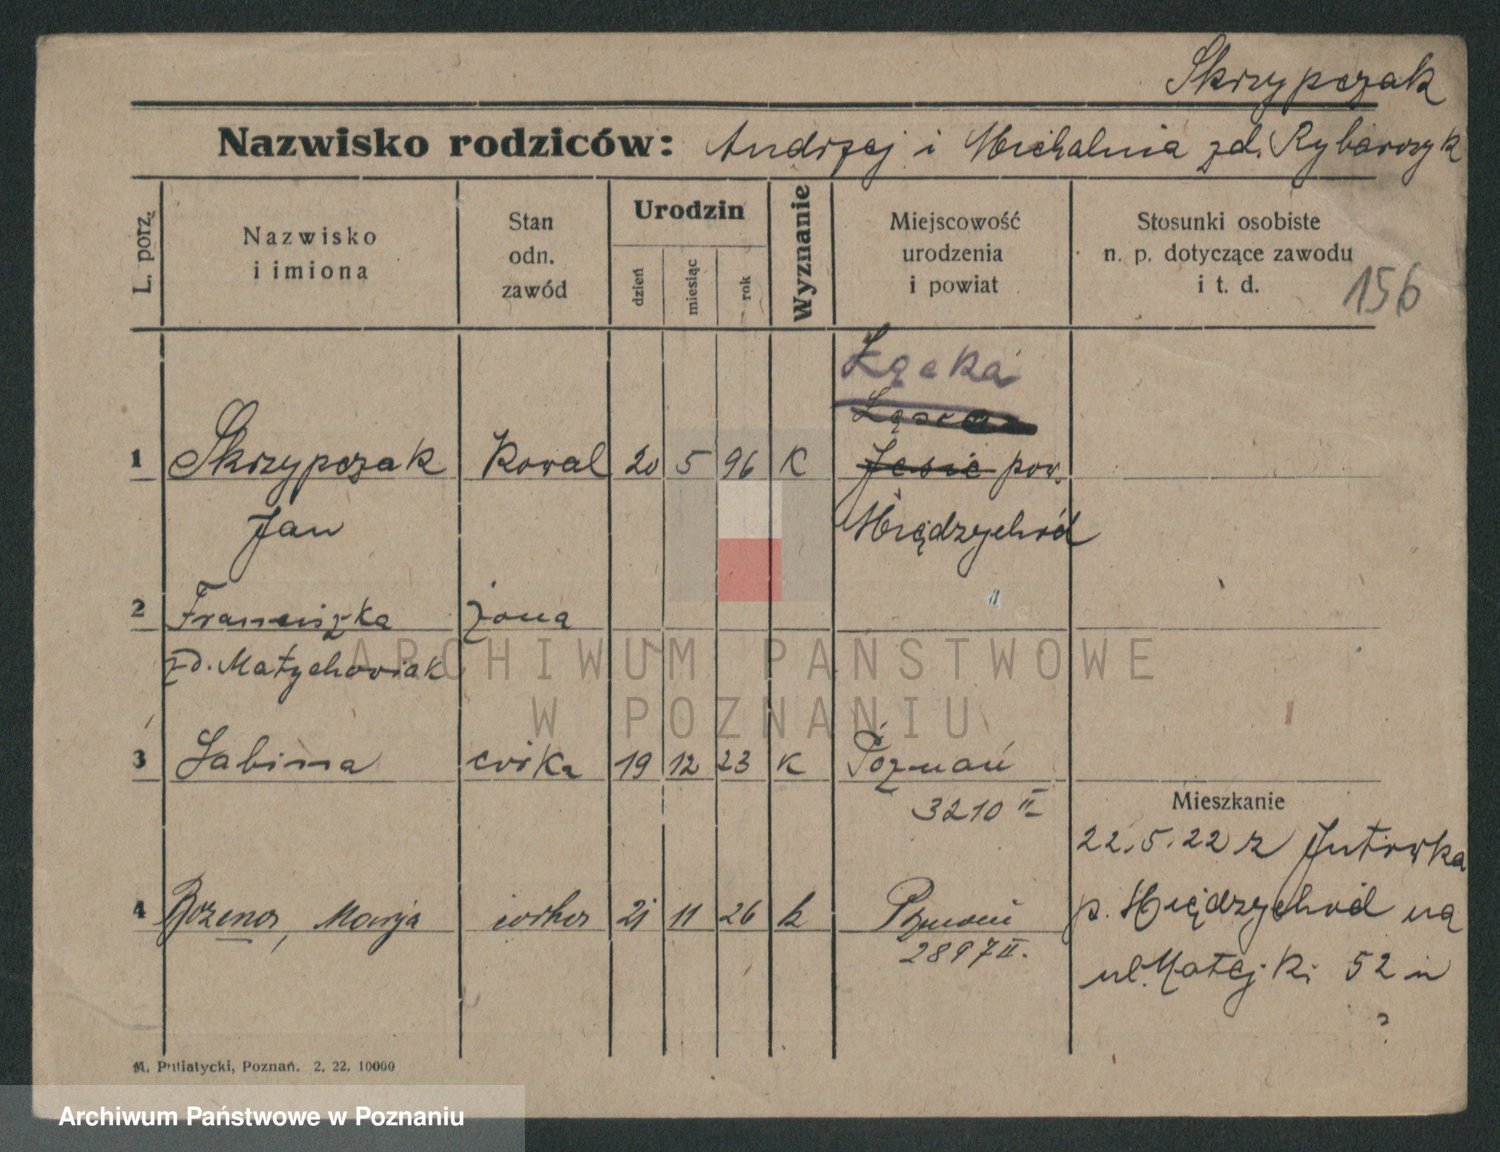 Skrzypczak
Nazwisko rodziców: Andrzej i Michalina zd. Rybarczyk
L. porz.
Nazwisko
i imiona
Stan
odn.
zawód
Urodzin
dzień
miesiąc
rok
Wyznanie
Miejscowość
urodzenia
i powiat
Stosunki osobiste
n. p. dotyczące zawodu
i t. d.
156
Łącka
1 Skrzypczak Kowal 20 5 96 K pow.
Jan Międzychód
2 Franciszka żona
zd. Matychowiak
3 Sabina córka 19 12 23 K Poznań
3210 II
4 Bożena, Marja córka 21 11 26 k Poznań
2897 II.
Mieszkanie
22.5.22 z Jutrwka
p. Międzychód na
ul. Matejki 52 u
?
M. Putiatycki, Poznań. 2. 22. 10000
ARCHIWUM PAŃSTWOWE
W POZNANIU
Archiwum Państwowe w Poznaniu